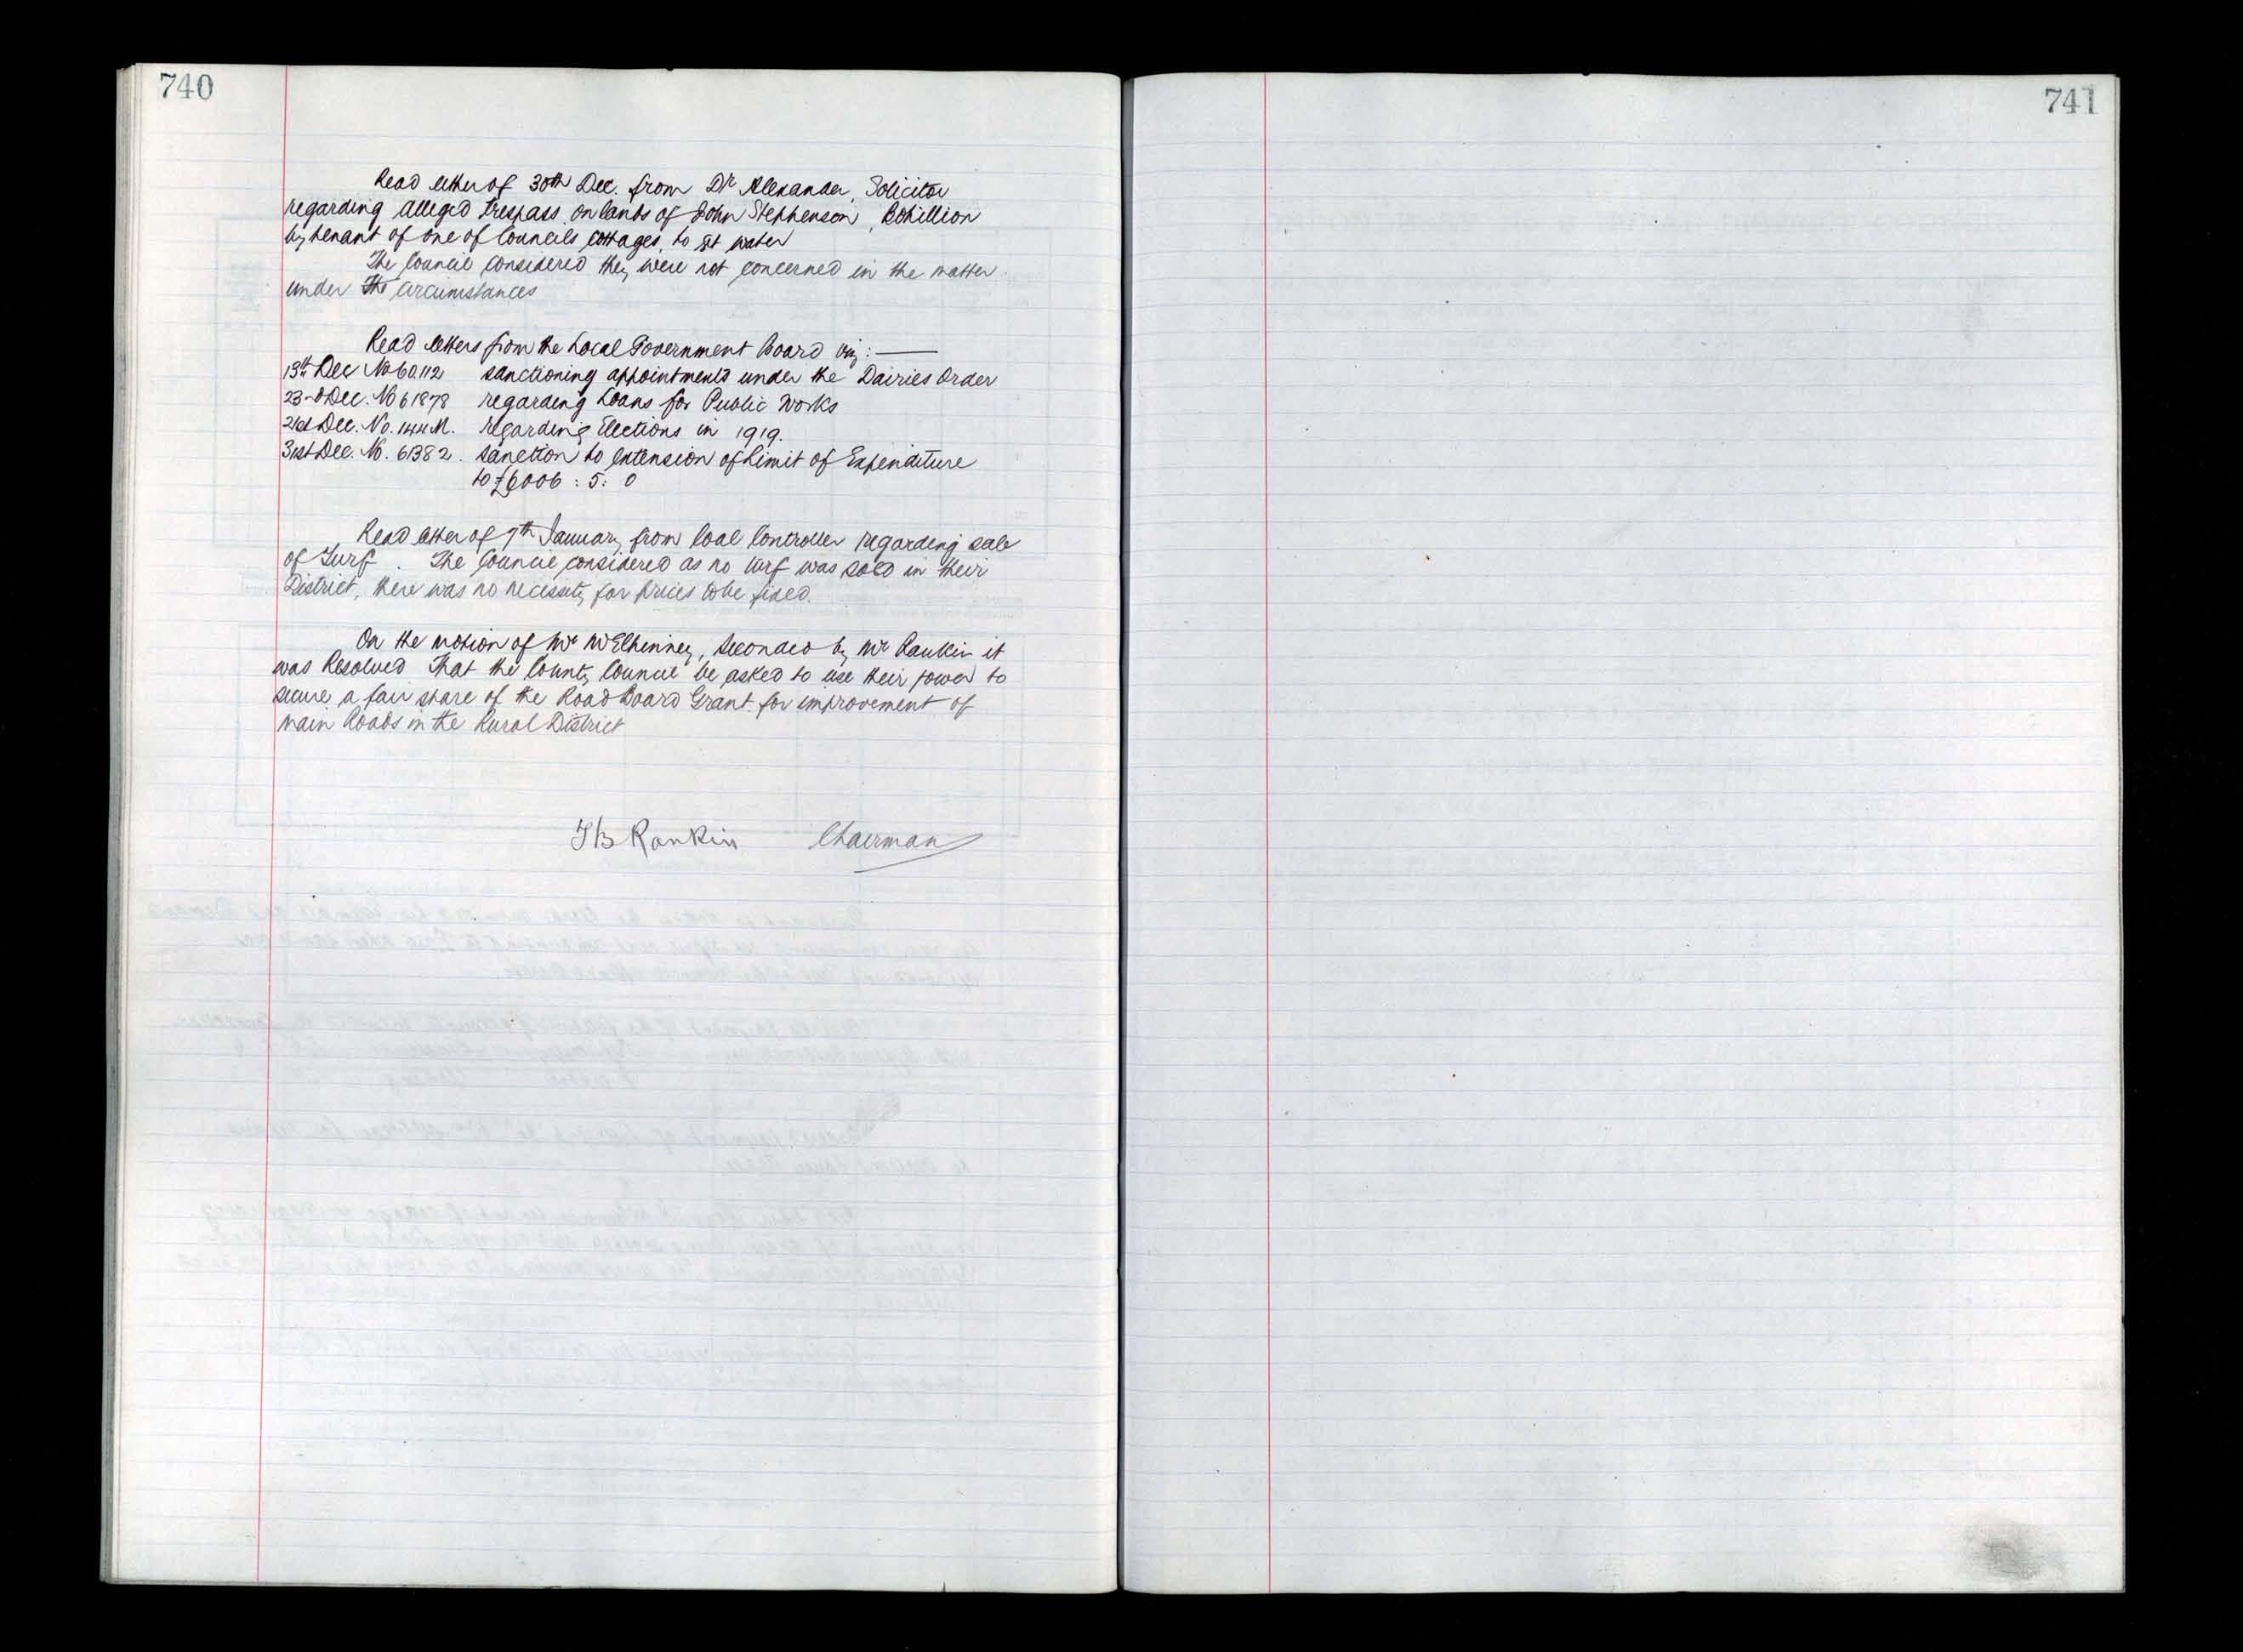 740
Read letter of 30th Dec. from Dr Alexander, Solicitor
regarding alleged trespass on lands of John Stephenson, Bohillion
by tenant of one of Councils cottages, to get water
The Council considered they were not concerned in the matter
under the circumstances
Read letters from the Local Government Board viz:—
13th Dec No 60112 sanctioning appointments under the Dairies Order
23rd Dec. No 61878 regarding Loans for Public Works
21st Dec. No. 144M. regarding Elections in 1919.
31st Dec. No. 61382. sanction to extension of Limit of Expenditure
to £6006 : 5 : 0
Read letter of 7th January from Coal Controller regarding sale
of Turf. The Council considered as no turf was sold in their
District, there was no necessity for prices to be fixed.
On the motion of Mr McElhinney, seconded by Mr Rankin it
was Resolved That the County Council be asked to use their power to
secure a fair share of the Road Board Grant for improvement of
main Roads in the Rural District
TB Rankin Chairman
741